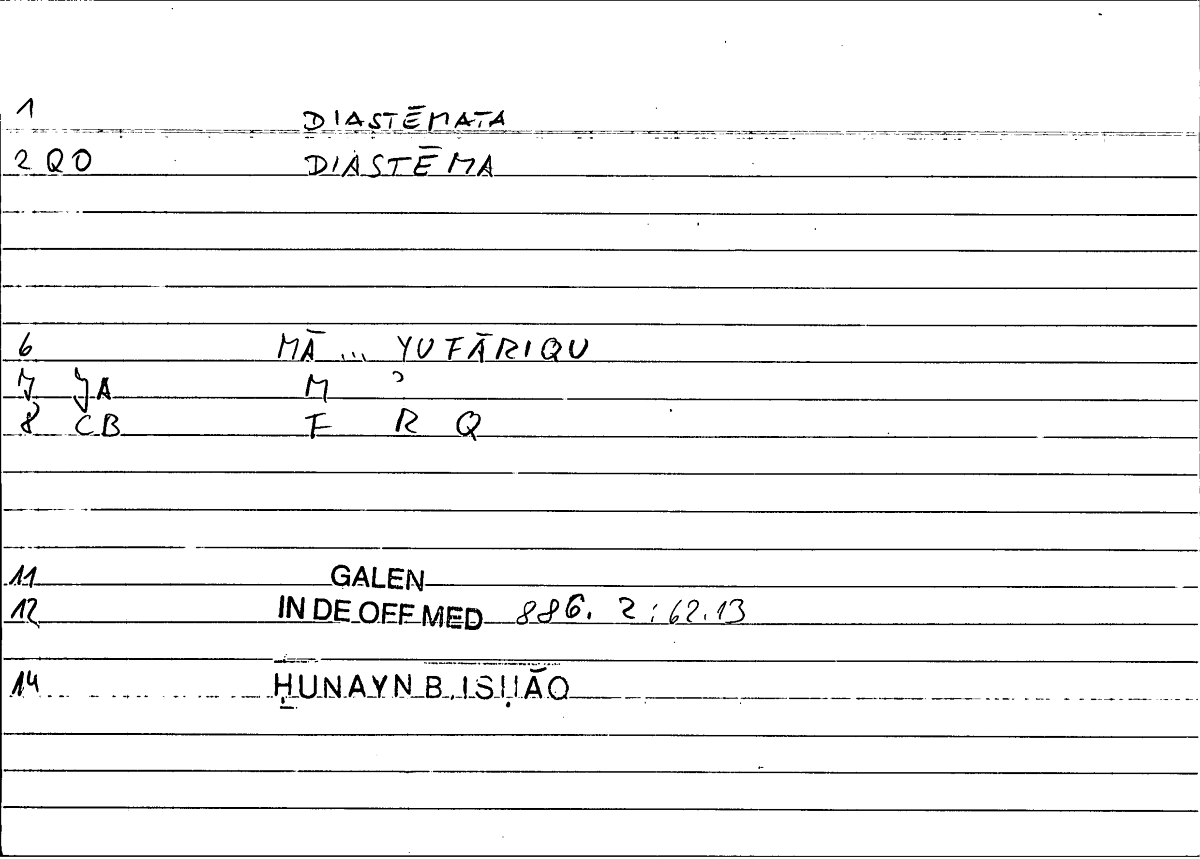 1 DIASTĒMATA
2 QO DIASTĒMA
6 MĀ ... YUFĀRIQU
7 JA M ʾ
8 CB F R Q
11 GALEN
12 IN DE OFF MED 886. 2 : 62.13
14 ḤUNAYN B. ISḤĀQ